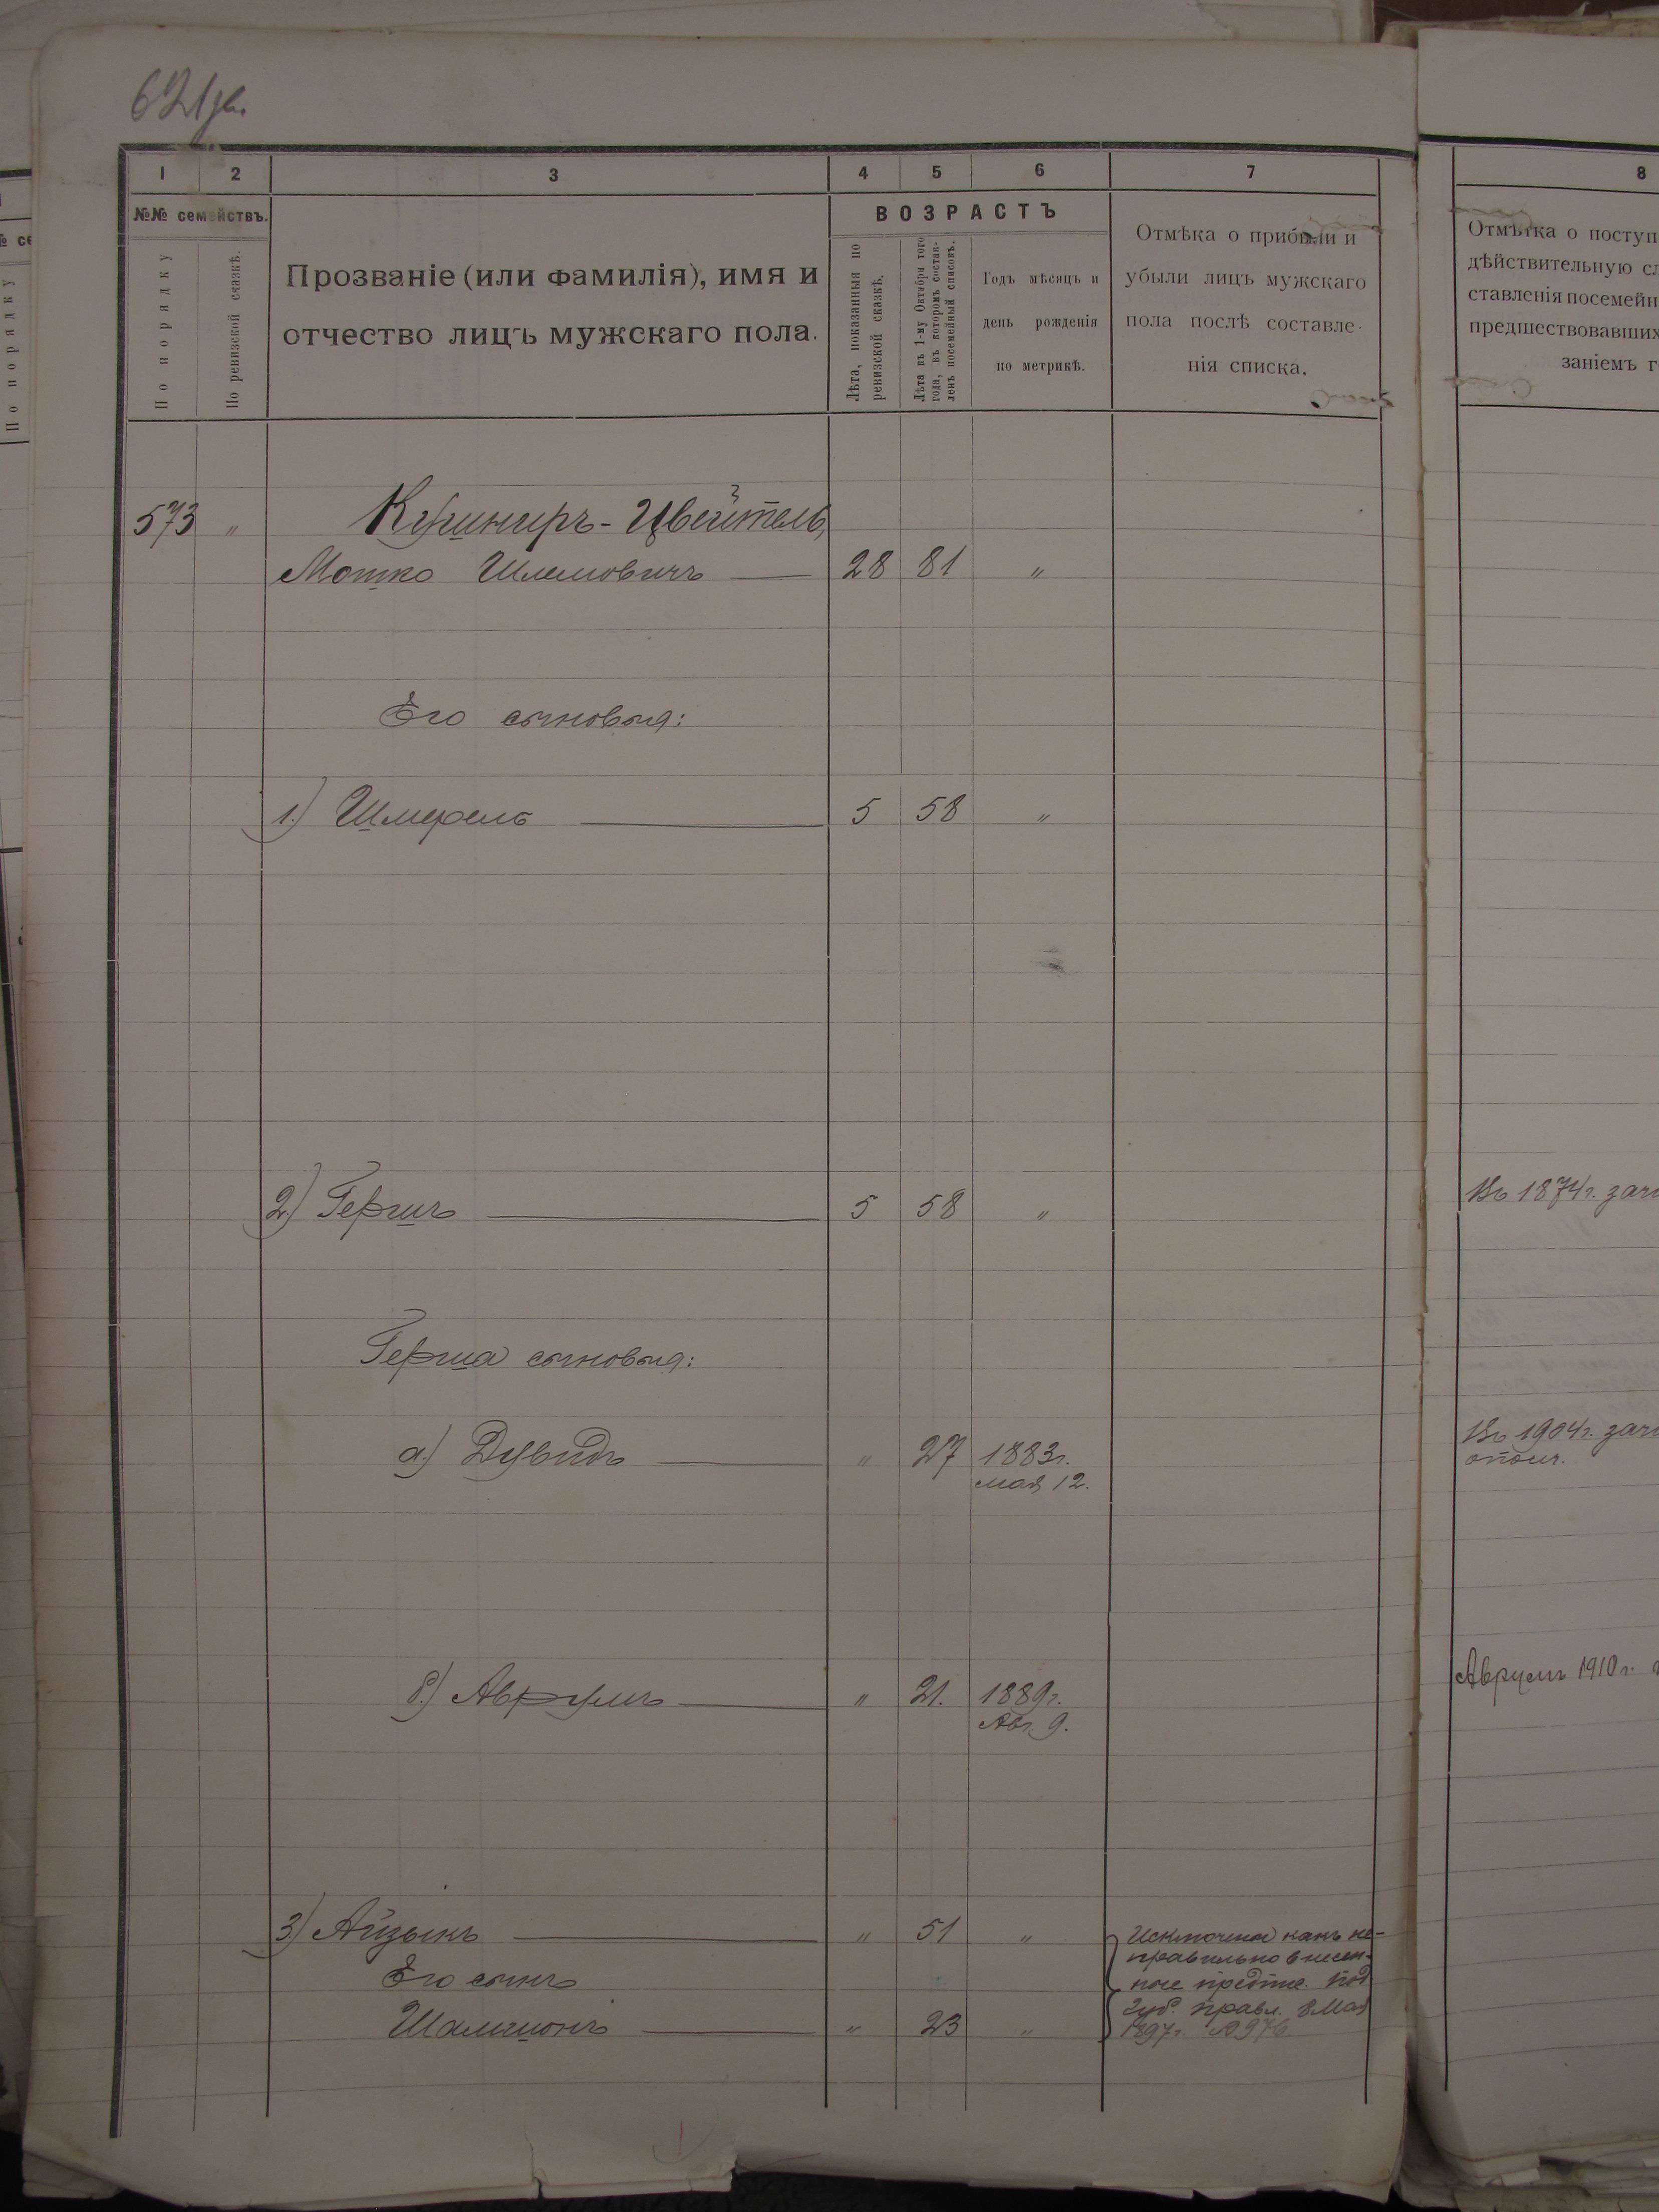 621
1 2 3 4 5 6 7
№№ семействъ.
По порядку
По ревизской сказкѣ.
Прозваніе (или фамилія), имя и
отчество лицъ мужскаго пола.
ВОЗРАСТЪ
Лѣта, показанныя по
ревизской сказкѣ.
Лѣта въ 1-му Октября того
года, въ которомъ состав-
ленъ посемейный списокъ.
Годъ мѣсяцъ и
день рожденія
по метрикѣ.
Отмѣка о прибыли и
убыли лицъ мужскаго
пола послѣ составле-
нія списка.
573 " Кушниръ-Цвейтель,
Мошко Шлемовичъ — 28 81 "
Его сыновья:
1.) Шмерель — 5 58 "
2) Гершъ — 5 58 "
Герша сыновья:
а.) Дувидъ — " 27 1883г.
мая 12.
б.) Аврумъ — " 21. 1889г.
Авг. 9.
3) Айзыкъ — " 51 " Исключены какъ не-
правильно внесен-
Его сынъ
ные предпис. Под.
Губ. правл. 8 Мая
Шамшонъ — " 23 " 1897г. № 976
8
Отмѣтка о поступ
дѣйствительную сл
ставленія посемейн
предшествовавшихъ
заніемъ г
Въ 1874г. зачи
Въ 1904г. зачи
ополч.
Аврумъ 1910г.
№ се
По порядку